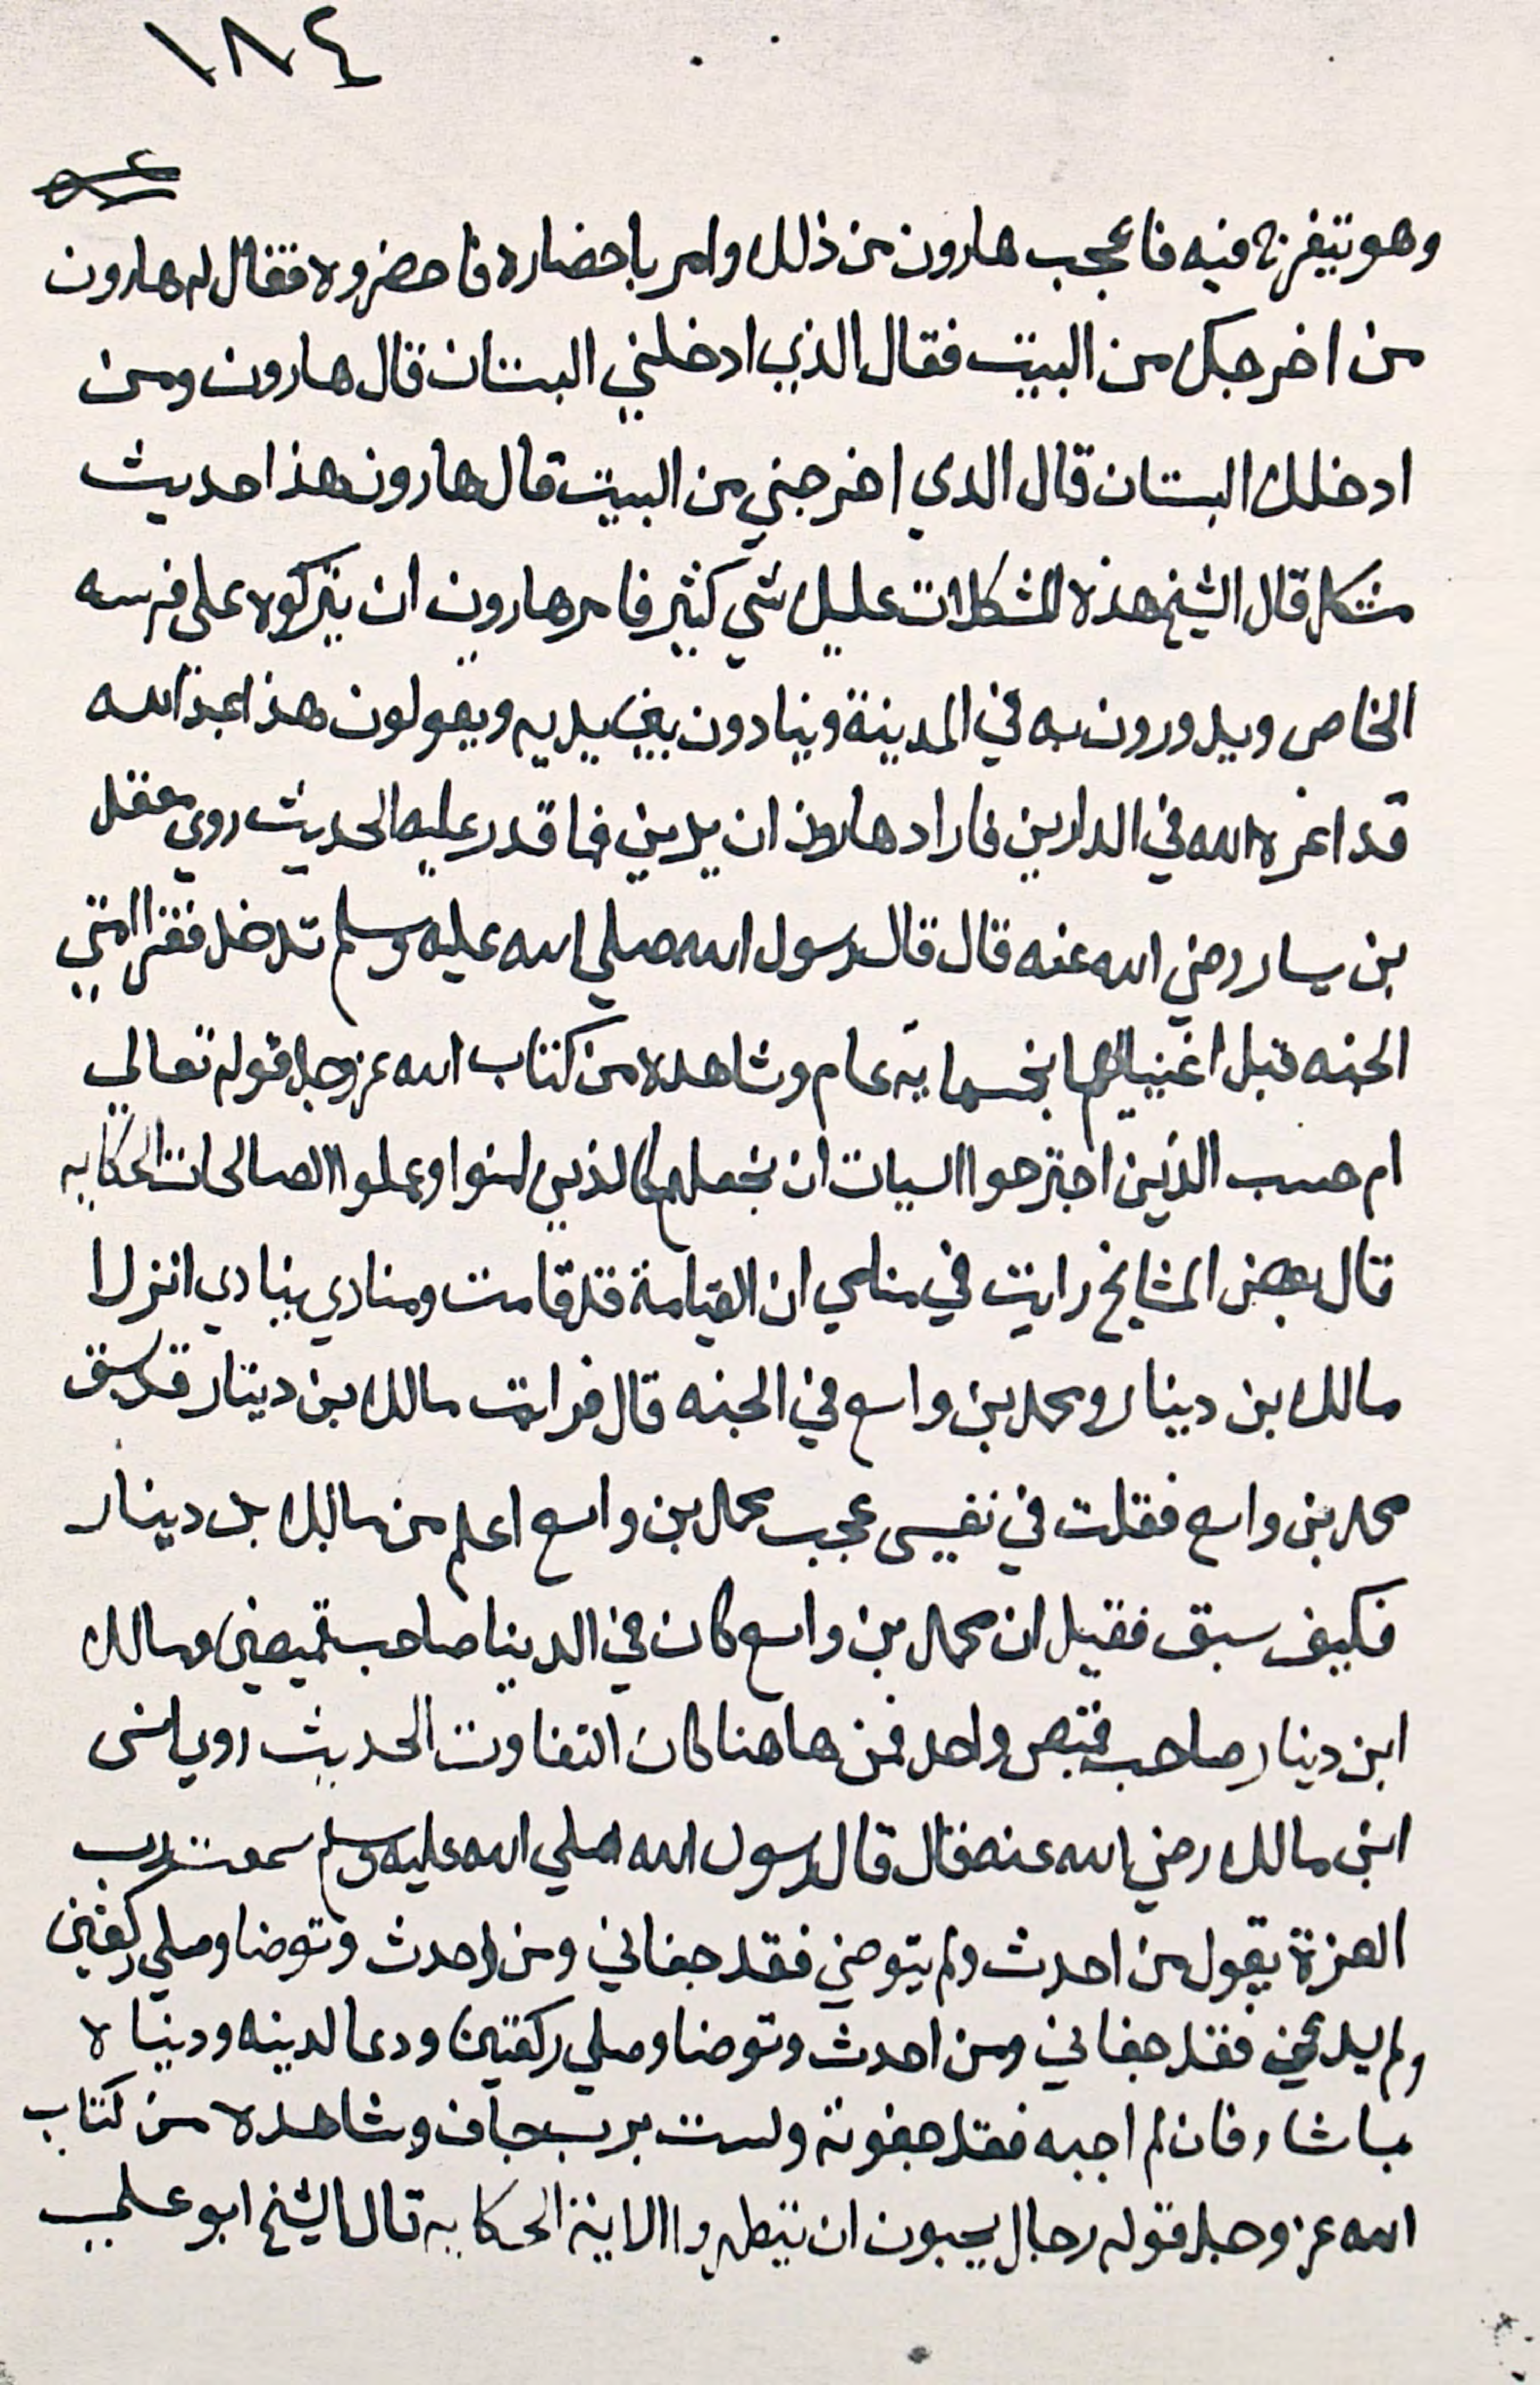 ١٨٤
وهو يتفرج فيه فاعجب هارون من ذلك وامر باحضاره فاحضروه فقال له هارون
من اخرجك من البيت فقال الذي ادخلني البستان قال هارون ومن
ادخلك البستان قال الدي اخرجني من البيت قال هارون هذا حديث
مشكل قال الشيخ هذه المشكلات عليك شي كثير فامر هارون ان يتركوه على فرسه
الخاص ويدورون به في المدينة وينادون بين يديه ويقولون هذا عبد الله
قد اعزه الله في الدارين فاراد هارون ان يدين فما قدر عليه الحديث روي معقل
بن يسار رضي الله عنه قال قال رسول الله صلي الله عليه وسلم تدخل فقرا امتي
الجنه قبل اغنيائهم بخمسماية عام وشاهده من كتاب الله عز وجل قوله تعالي
ام حسب الذين اجترحوا السيات ان نجعلهم كالذين امنوا وعملوا الصالحات الحكايه
قال بعض المشايخ رايت في منامي ان القيامة قد قامت ومنادي ينادي انزلا
مالك بن دينار ومحمد بن واسع في الجنه قال فرايت مالك بن دينار قد سبق
محمد بن واسع فقلت في نفسي عجب محمد بن واسع اعلم من مالك بن دينار
فكيف سبق فقيل ان محمد بن واسع كان في الدينا صاحب قميصين ومالك
ابن دينار صاحب قميص واحد فمن هاهنا كان التفاوت الحديث روي انس
ابن مالك رضي الله عنه قال قال رسول الله صلي الله عليه وسلم سمعت رب
العزة يقول من احدث ولم يتوضي فقد جفاني ومن احدث وتوضا وصلي ركعتين
ولم يدعني فقد جفاني ومن احدث وتوضا وصلي ركعتين ودعا لدينه ودنياه
بما شا فان لم اجبه فقد جفوته ولست برب جاف وشاهده من كتاب
الله عز وجل قوله رجال يحبون ان يتطهروا الاية الحكايه قال الشيخ ابو علي